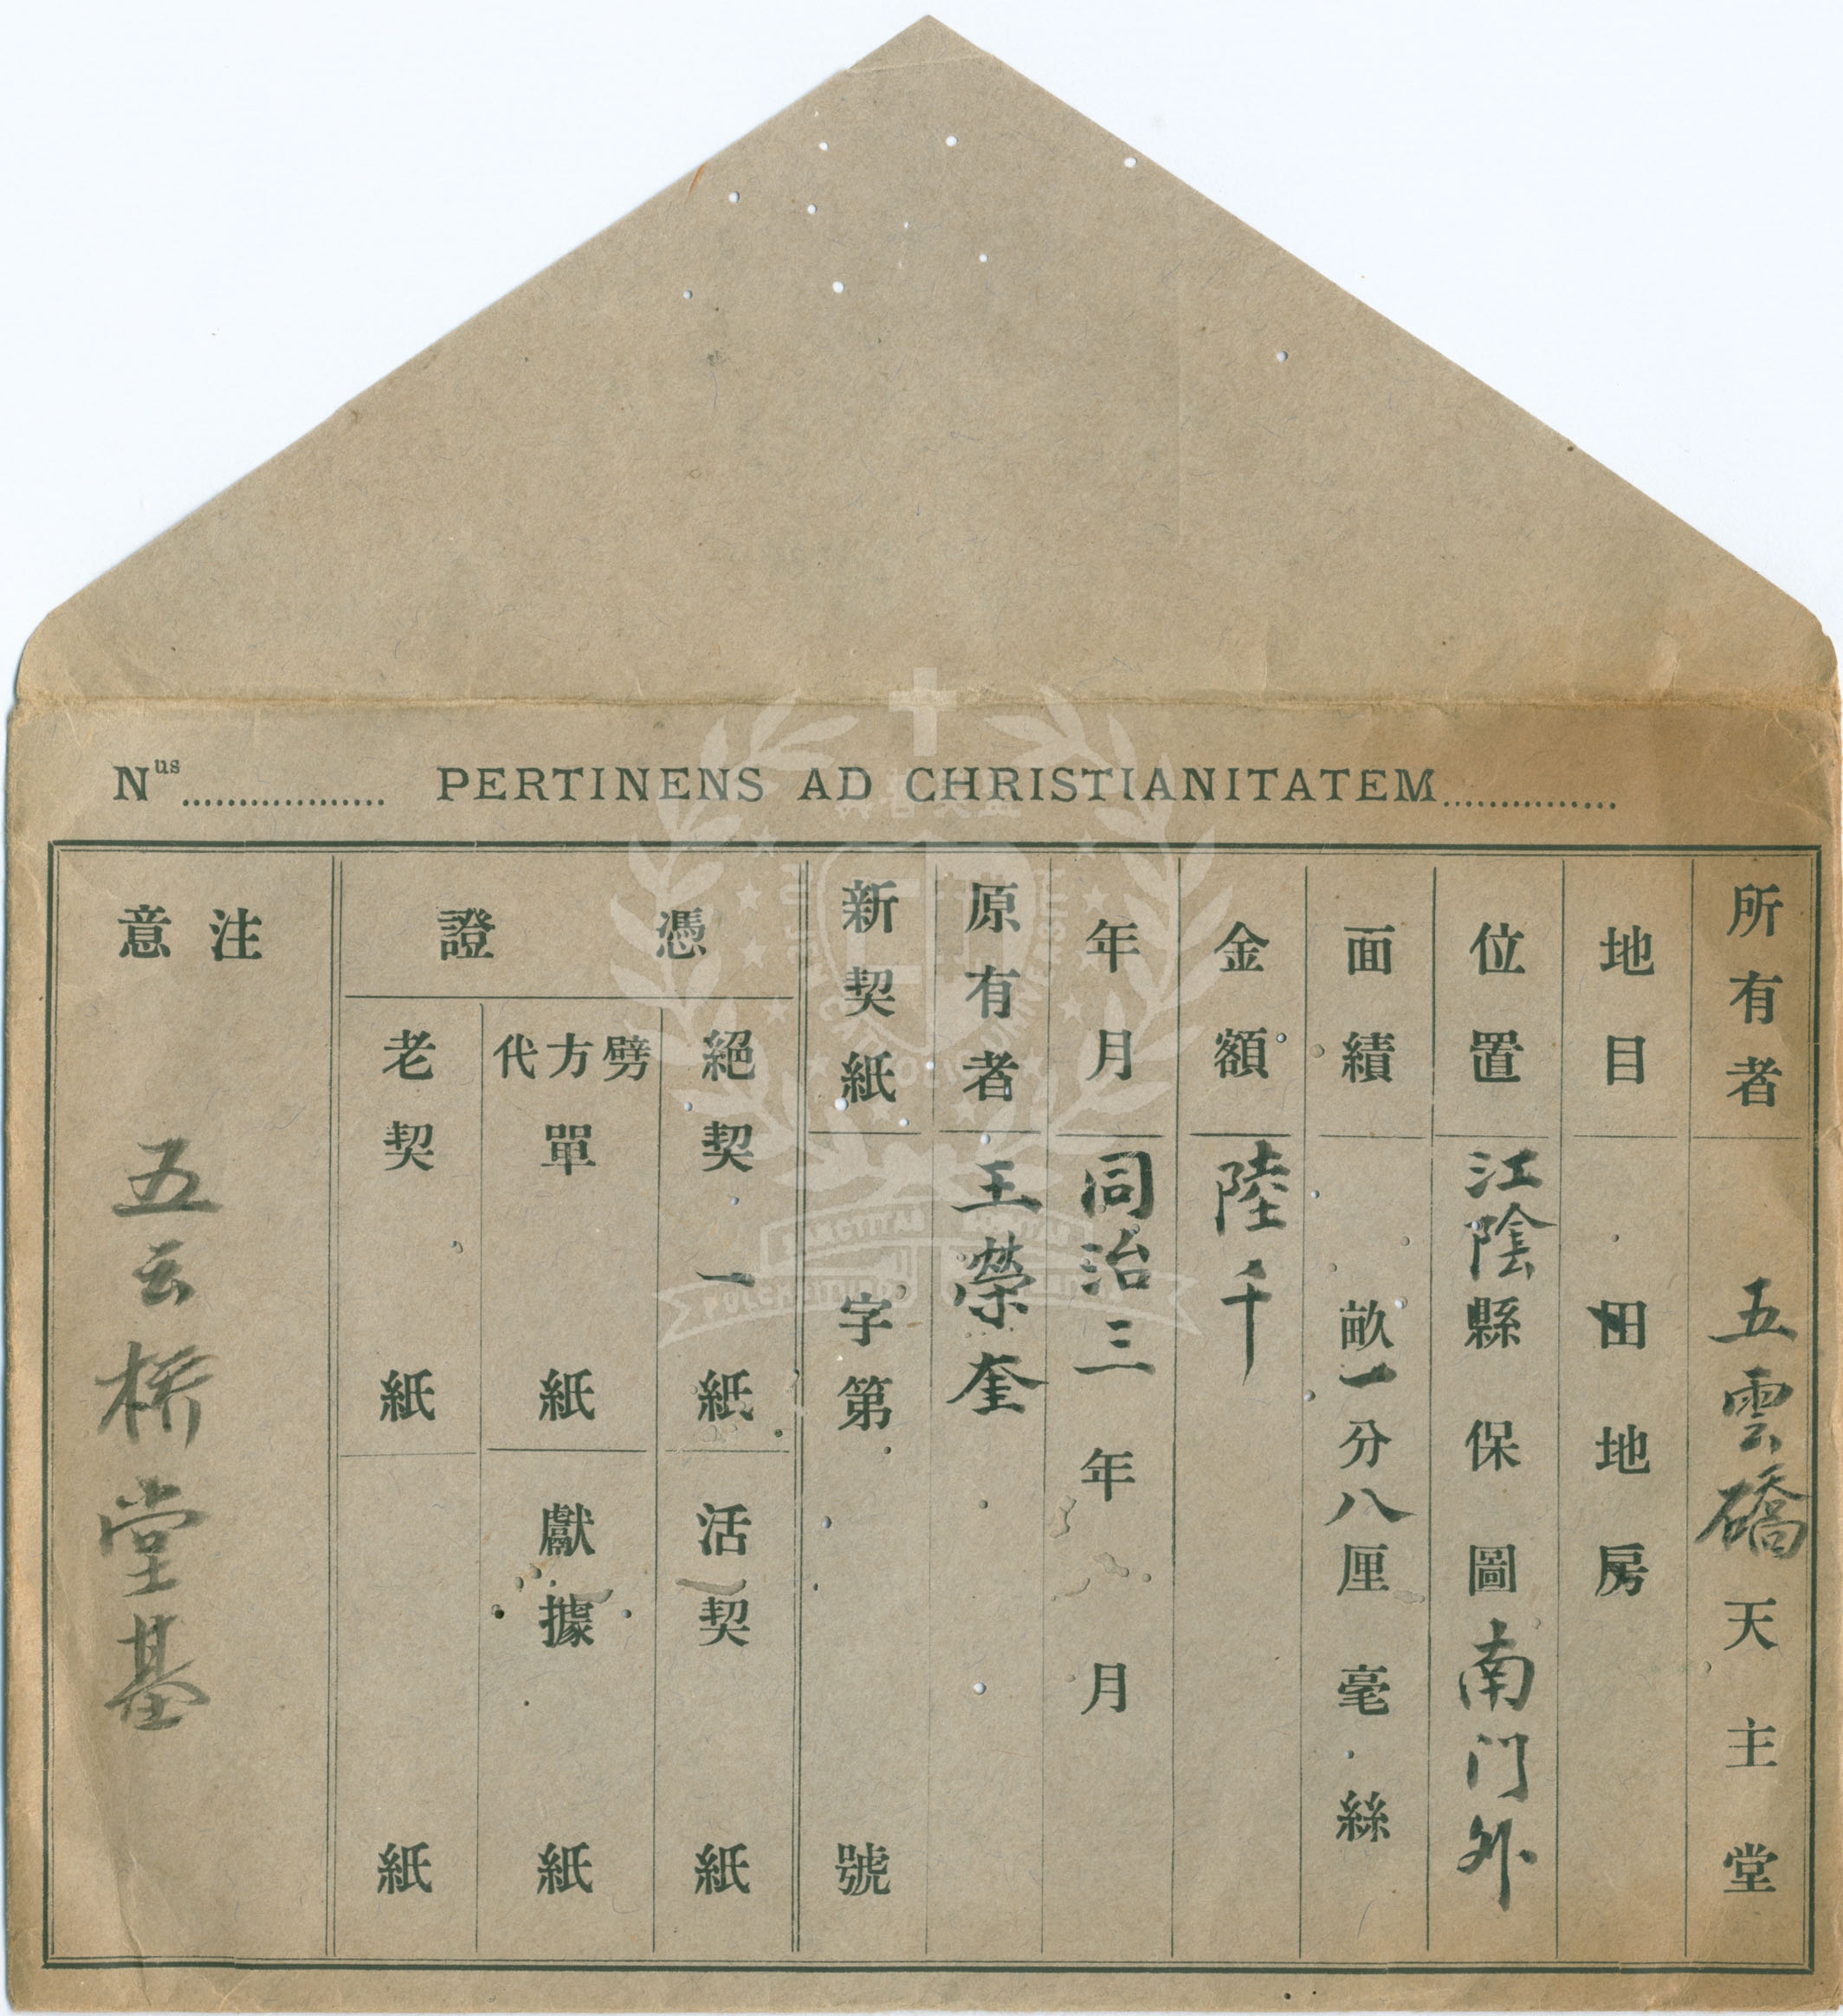 Nus.................. PERTINENS AD CHRISTIANITATEM...............
所有者 五雲礄天主堂
地目 田地房
位置 江陰縣 保 圖南门外
面績 畝一分八厘 毫 絲
金額 陸千
年月 同治三年 月
原有者 王榮奎
新契紙 字第 號
憑證
絕契 一紙
活契 紙
劈方代單 紙
獻據 紙
老契 紙
紙
注意
五云桥堂基